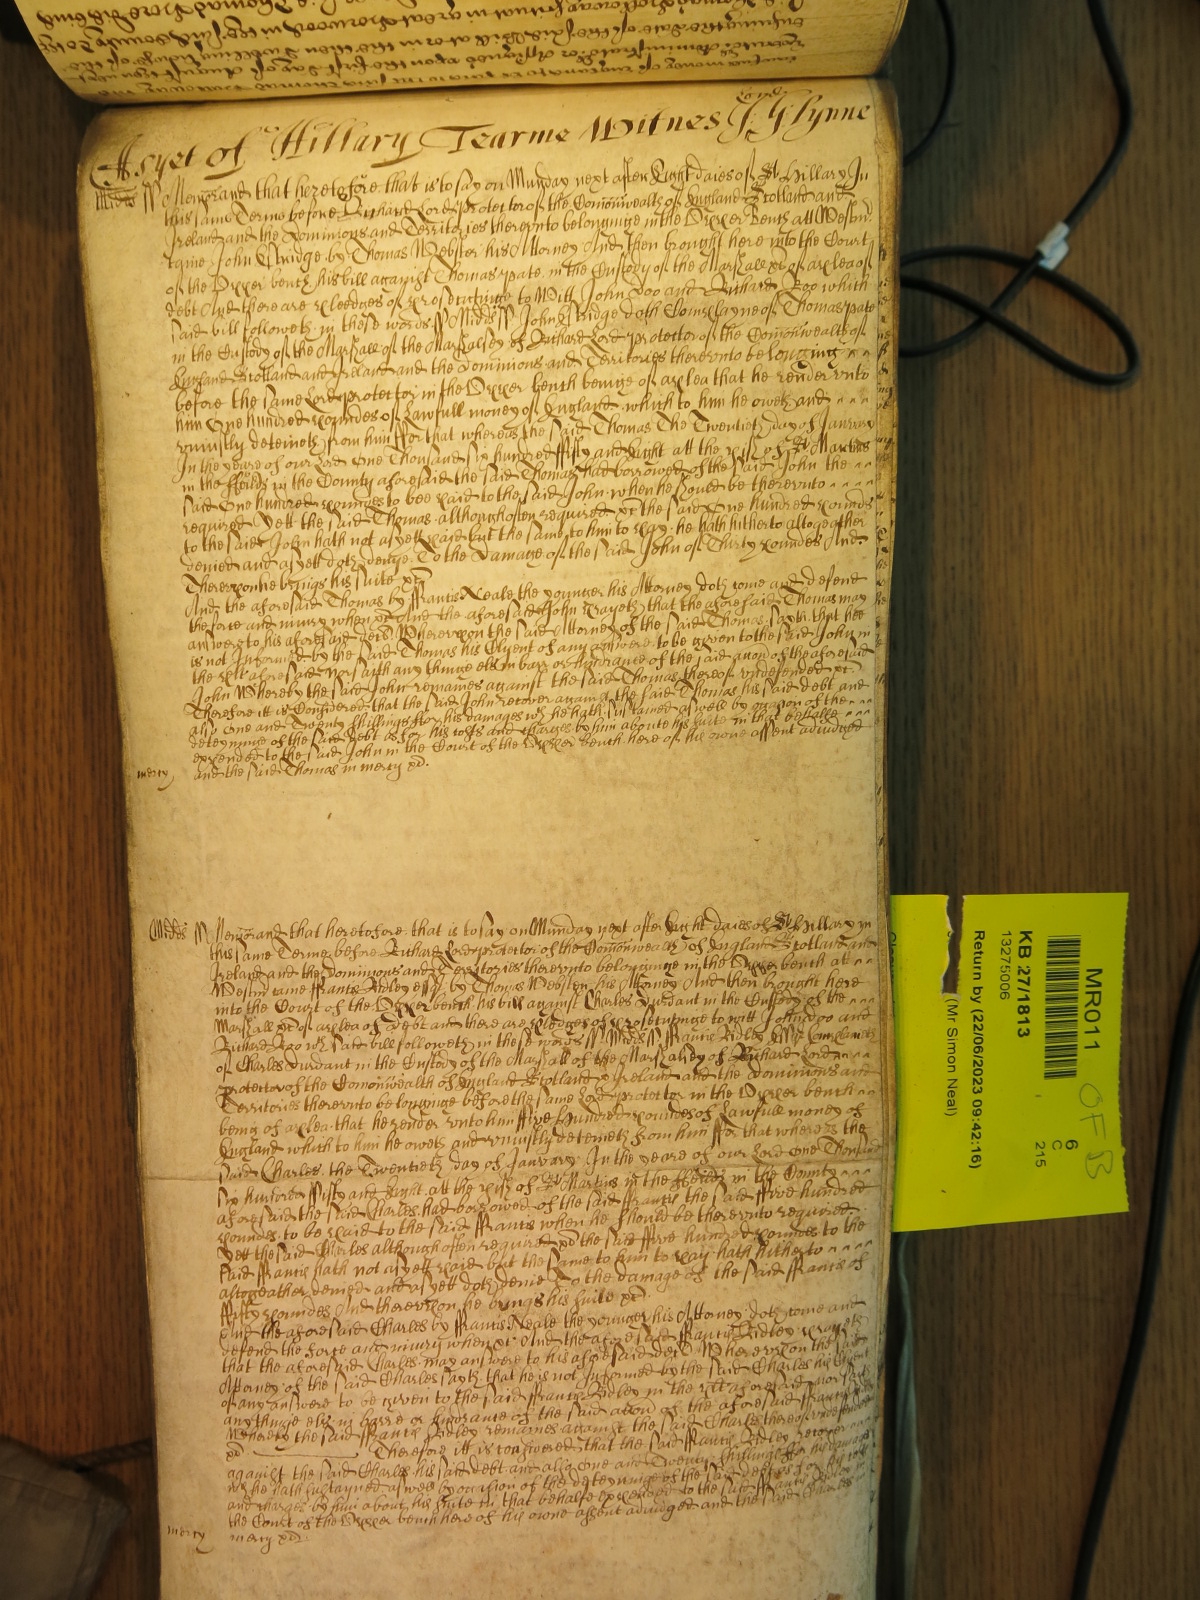 As yet of Hillary Tearme Witnes J. Glynne
Midds ss Memorand that heretofore that is to say on Munday next after Eight daies of St Hillary In
this same Terme before Richard Lord protector of the Comonwealth of England Scotland and
Ireland and the Dominions and Territories therevnto belonginge in the Vpper Bench att Westmr
came John Estridge by Thomas Webster his Attorney And then brought here into the Court
of the Vpper bench his bill against Thomas pate in the Custody of the Marshall &c of a plea of
debt And there are pledges of prosecutinge to Witt John Doo and Richard Roo which
said bill followeth in these words ss Midds ss John Estridge doth Complayne of Thomas pate
in the Custody of the Marshall of the Marshalsey of Richard Lord protector of the Comonwealth of
England Scotland and Ireland and the Dominions and Territories therevnto belonging
before the same Lord protector in the Vpper bench beinge of a plea that he render vnto
him One hundred poundes of Lawfull money of England which to him he oweth and
vniustly deteineth from him ffor that whereas the said Thomas The Twentieth day of January
In the yeare of our Lord One Thousand six hundred ffifty and Eight att the pish of St Martins
in the ffeilds in the County aforesaid the said Thomas had borrowed of the said John the
said One hundred poundes to bee paid to the said John when he should be therevnto
required Yett the said Thomas although often required &c the said One hundred pounds
to the said John hath not as yett paid but the same to him to pay he hath hitherto altogeather
denied and as yett doth denye To the Damage of the said John of Thirty poundes And
Therevpon he brings his suite &c
And the aforesaid Thomas by ffrancis Neale the younger his Attorney doth come and defend
the force and iniury when &c And the aforesaid John prayeth that the aforesaid Thomas may
answere to his aforesaid Wherevpon the said Attorney of the said Thomas sayth that hee
is not Informed by the said Thomas his Clyent of any answere to be given to the said John in
the plea aforesaid Nor saith any thinge els in barr or of the said accon of the aforesaid
John Whereby the said John remaines against the said Thomas thereof vndefended &c
Therefore it is Considered that the said John recover against the said Thomas his said debt and
also One and Twenty shillings ffor his damages wch he hath sustained aswell by occasion of the
deteyninge of the said debt as for his costs and charges by him about his suite in that behalfe
expended to the said John in the Court of the Vpper Bench here of his owne assent adiudged
mercy and the said Thomas in mercy &c.
Midds ss Memorand that heretofore that is to say on Munday next after Eight daies of St Hillary in
this same Terme before Richard Lord protector of the Comonwealth of England Scotland and
Ireland and the dominions and Territories therevnto belonginge in the Vpper bench att
Westmr came ffrancis Ridley by Thomas Webster his Attorney And then brought here
into the Court of the Vpper bench his bill against Charles Durdant in the Custody of the
Marshall &c of a plea of debt and there are pledges of prosecutinge to witt John doo and
Richard Roo wch said bill followeth in these words ss Midds ss ffrancis Ridley
of Charles Durdant in the Custody of the Marshall of the Marshalsey of Richard Lord
protector of the Comonwealth of England Scotland & Ireland and the dominions and
Territories therevnto belonginge before the same Lord protector in the Vpper bench
being of a plea that he render vnto him ffive hundred poundes of Lawfull money of
England which to him he oweth and vniustly deteineth from him ffor that whereas the
said Charles the Twentieth day of January In the yeare of our Lord One Thousand
six hundred ffifty and Eight att the pish of St Martins in the ffeilds in the County
aforesaid the said Charles had borrowed of the said ffrancis the said ffive hundred
poundes to be paid to the said ffrancis when he should be therevnto required
Yett the said Charles although often required &c the said ffive hundred poundes to the
said ffrancis hath not as yett paid but the same to him to pay hath hitherto
altogeather denied and as yett doth denie To the damage of the said ffrancis of
ffifty poundes And therevpon he brings his suite &c
And the aforesaid Charles by ffrancis Neale the younger his Attorney doth come and
defend the force and iniury when &c And the aforesaid ffrancis Ridley prayeth
that the aforesaid Charles may answere to his aforesaid Wherevpon the said
Attorney of the said Charles sayth that he is not Informed by the said Charles his Clyent
of any answere to be given to the said ffrancis Ridley in the plea aforesaid nor saith
any thinge els in barre or of the said accon of the aforesaid ffrancis
Whereby the said ffrancis Ridley remaines against the said Charles thereof vndefended
&c Therefore itt is considered that the said ffrancis Ridley recover
against the said Charles his said debt and also one and Twenty shillings for his damages
wch he hath sustayned aswell by occasion of the deteyninge of the said debt as for his costs
and charges by him about his suite in that behalfe expended to the said ffrancis
the Court of the Vpper bench here of his owne assent adiudged and the said Charles
mercy mercy &c
MR011
6
C
215
KB 27/1813
13275006
Return by (22/06/2023 09:42:16)
(Mr Simon Neal)
OFB